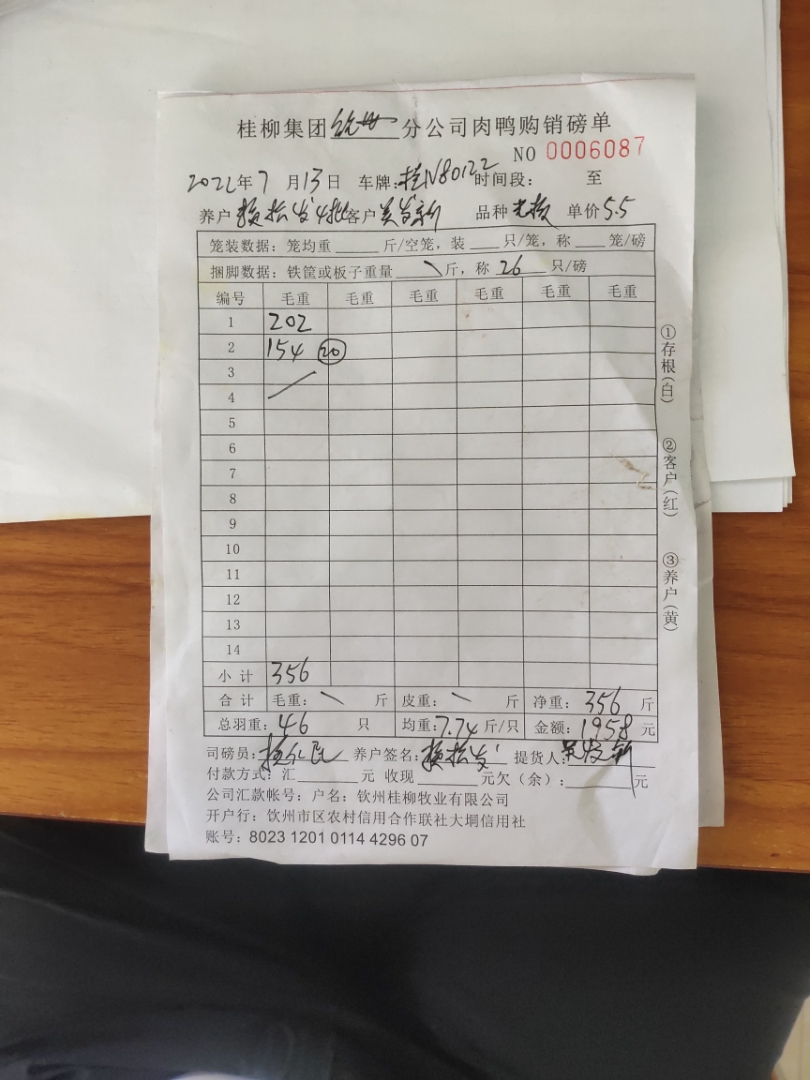 桂柳集团钦州分公司肉鸭购销磅单
NO 0006087
2022年7月13日 车牌：桂N80122 时间段： 至
养户 松发4批 客户 发新 品种 单价5.5
笼装数据：笼均重 斤/空笼，装 只/笼，称 笼/磅
捆脚数据：铁筐或板子重量 \ 斤，称 26 只/磅
编号 毛重 毛重 毛重 毛重 毛重 毛重
1 202
2 154 20
3
4
5
6
7
8
9
10
11
12
13
14
小计 356
合计 毛重：\ 斤 皮重：\ 斤 净重：356 斤
总羽重：46 只 均重：7.74 斤/只 金额：1958 元
司磅员： 养户签名：松发 提货人：
付款方式：汇 元 收现 元欠（余）： 元
公司汇款帐号：户名：钦州桂柳牧业有限公司
开户行：钦州市区农村信用合作联社大垌信用社
账号：8023 1201 0114 4296 07
①存根（白）
②客户（红）
③养户（黄）